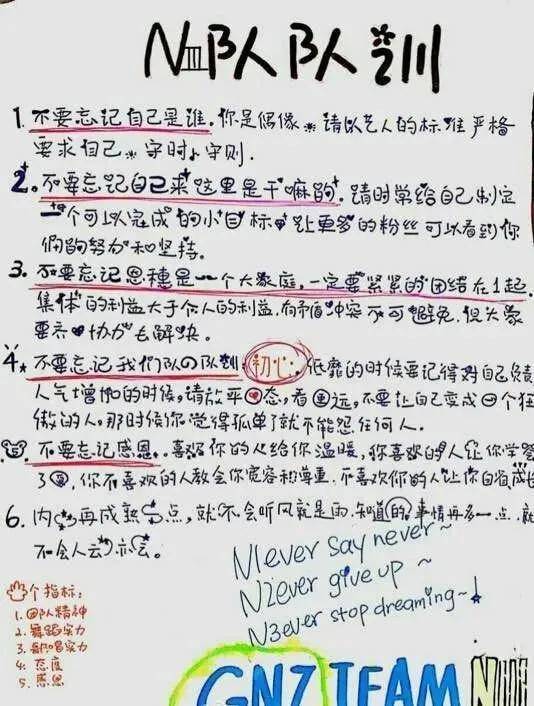 NIII队人队人之训
1. 不要忘记自己是谁.你是偶像。请以艺人的标准严格
要求自己。守时、守则.
2. 不要忘记自己来这里是干嘛的. 请时常给自己制定
一个可以完成的小目标 让更多的粉丝可以看到你
们的努力和坚持。
3. 不要忘记恩穗是一个大家庭,一定要紧紧的团结在1起.
集体的利益大于个人的利益,有矛盾冲突不可避免,但大家
要齐心协力去解决。
4. 不要忘记我们队の队训:初心.低靡的时候要记得对自己负责
人气增加的时候,请放平心态,看 远,不要让自己变成一个狂
傲的人.那时候你觉得孤单了就不能怨任何人.
不要忘记感恩.喜欢你的人给你温暖,你喜欢的人让你学会
了 ,你不喜欢的人教会你宽容和尊重,不喜欢你的人让你自省成长
6. 内心再成熟一点,就不会听风就是雨.知道的事情再多一点,就
不会人云亦云。
N1ever say never~
N2ever give up ~
N3ever stop dreaming~!
个指标:
1. 团队精神
2. 舞蹈实力
3. 歌唱实力
4. 态度
5. 感恩
GNZ TEAM NIII